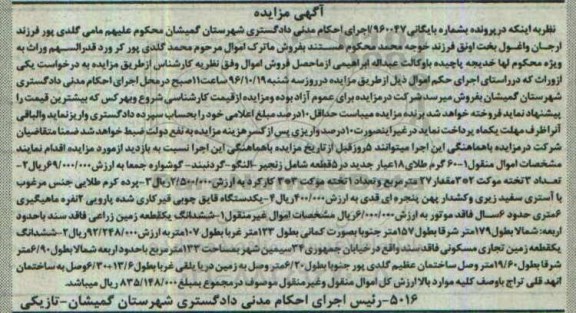 آگهی مزایده
نظر به اینکه در پرونده بشماره بایگانی ۹۶۰۰۴۷/اجرای احکام مدنی دادگستری شهرستان گمیشان محکوم علیهم مامی گلدی پور فرزند
ارجان واغول بخت اونق فرزند خوجه محمد محکوم هستند بفروش ماترک اموال مرحوم محمد گلدی پور کر ورد قدرالسهم وراث به
ویژه محکوم لها خدیجه پاچیده باوکالت عبداله ابراهیمی از ماحصل فروش اموال وفق نظریه کارشناس ازطریق مزایده به درخواست یکی
ازوراث که درراستای اجرای حکم اموال ذیل ازطریق مزایده درروزسه شنبه ۹۶/۱۰/۱۹ساعت۱۱صبح درمحل اجرای احکام مدنی دادگستری
شهرستان گمیشان بفروش میرسد شرکت درمزایده برای عموم آزاد بوده ومزایده ازقیمت کارشناسی شروع وبهرکس که بیشترین قیمت را
پیشنهاد نماید فروخته خواهد شد برنده مزایده میباست حداقل۱۰درصد مبلغ اعلامی خود را بحساب سپرده دادگستری واریزنماید والباقی
آنرا ظرف مهلت یکماه پرداخت نماید درغیراینصورت۱۰درصد واریزی پس ازکسرهزینه مزایده به نفع دولت ضبط خواهدشد ضمنا متقاضیان
شرکت درمزایده باهماهنگی این اجرا میتوانند ۵روزقبل از تاریخ مزایده باهماهنگی این اجرا نسبت به بازدید ازمورد مزایده اقدام نمایند
مشخصات اموال منقول۱-۶۰ گرم طلای۱۸عیار جدید در۵قطعه شامل زنجیر-النگو-گردنبند- گوشواره جمعا به ارزش۶۹/۰۰۰/۰۰۰ریال۲-
تعداد ۳تخته موکت ۲*۳مقدار۲۷مترمربع وتعداد۱تخته موکت ۳*۲ کارکرد به ارزش۲/۵۰۰/۰۰۰ریال۳-پرده کرم طلایی جنس مرغوب
با آستری سفید زیری وکشدار پهن پنجره ای قدی به ارزش۴۰۰/۰۰۰ریال۴-یکدستگاه قایق چوبی قیرکاری شده پارویی ۲نفره ماهیگیری
۶متری حدود ۶سال فاقد موتور به ارزش۶/۰۰۰/۰۰۰ریال مشخصات اموال غیرمنقول۱-ششدانگ یکقطعه زمین زراعی فاقد سند باحدود
اربعه: شمالا بطول۱۷۹متر شرقا بطول۱۵۷متر جنوبا بصورت کمانی بطول ۱۳۳متر غربا بطول ۱۰۷متربه ارزش۹۲/۲۴۸/۰۰۰ریال۲-ششدانگ
یکقطعه زمین تجاری مسکونی فاقد سند واقع درخیابان جمهوری۳۴سیمین شهر بمساحت ۱۳۳مترمربع باحدود اربعه شمالا بطول۶/۹۰متر
شرقا بطول۱۹/۶۰متر وصل ساختمان عظیم گلدی پور جنوبا بطول۶/۳۰متر وصل به زمین دریا پلقی غربا بطول۱۳/۶+۶/۳۰وصل به ساختمان
آنهد قلی تراج باوصف کلیه موارد بالا ارزش کل اموال منقول وغیرمنقول موصوف درمجموع بمبلغ۸۳۵/۱۴۸/۰۰۰ ریال میباشد.
۵۰۱۶-رئیس اجرای احکام مدنی دادگستری شهرستان گمیشان-تازیکی